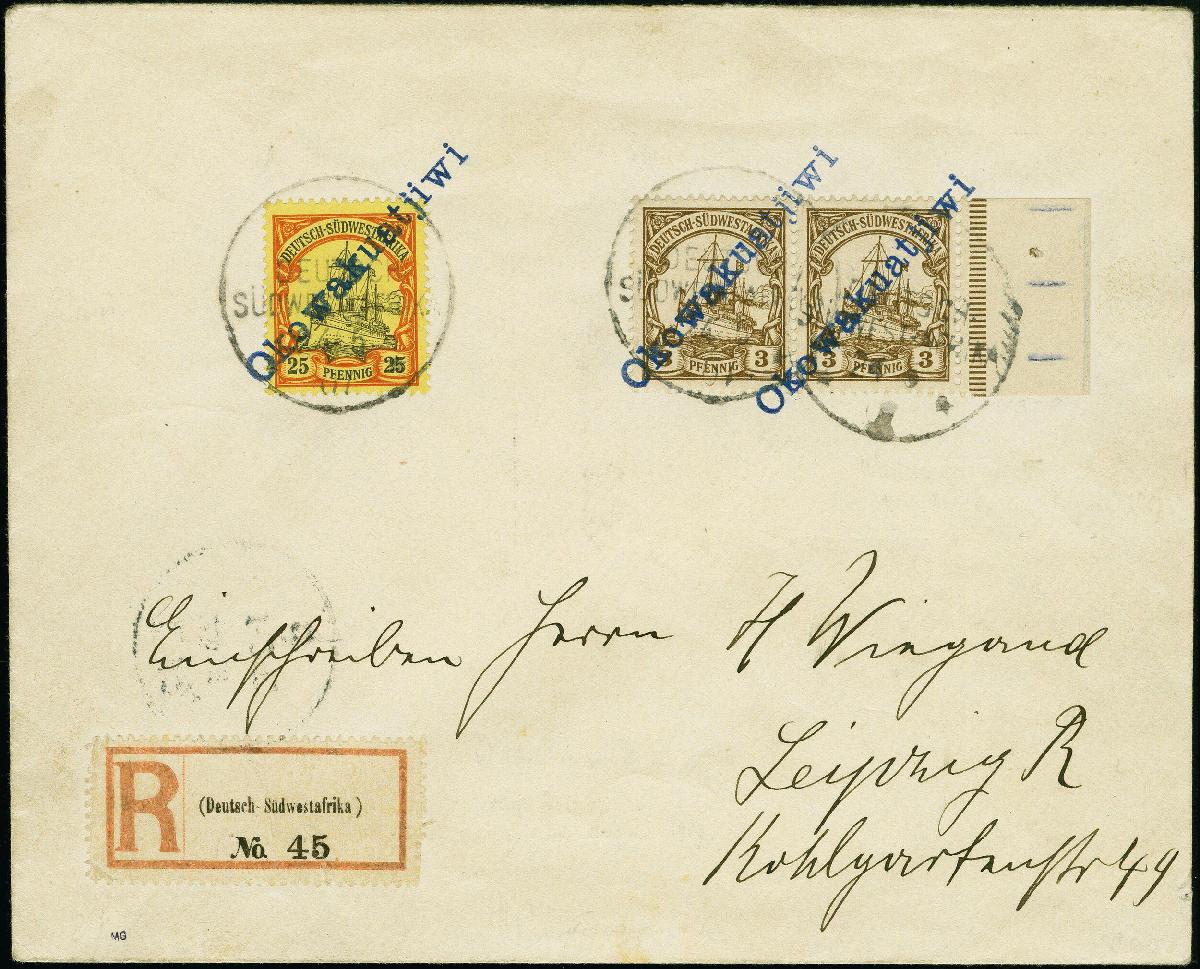 DEUTSCH-SÜDWESTAFRIKA
25 PFENNIG 25
Okowakuatjiwi
DEUTSCH-SÜDWESTAFRIKA
3 PFENNIG 3
Okowakuatjiwi
DEUTSCH-SÜDWESTAFRIKA
3 PFENNIG 3
Okowakuatjiwi
Einschreiben Herrn H Wiegand
Leipzig R
Kohlgartenstr 49
R
(Deutsch-Südwestafrika)
No. 45
MG